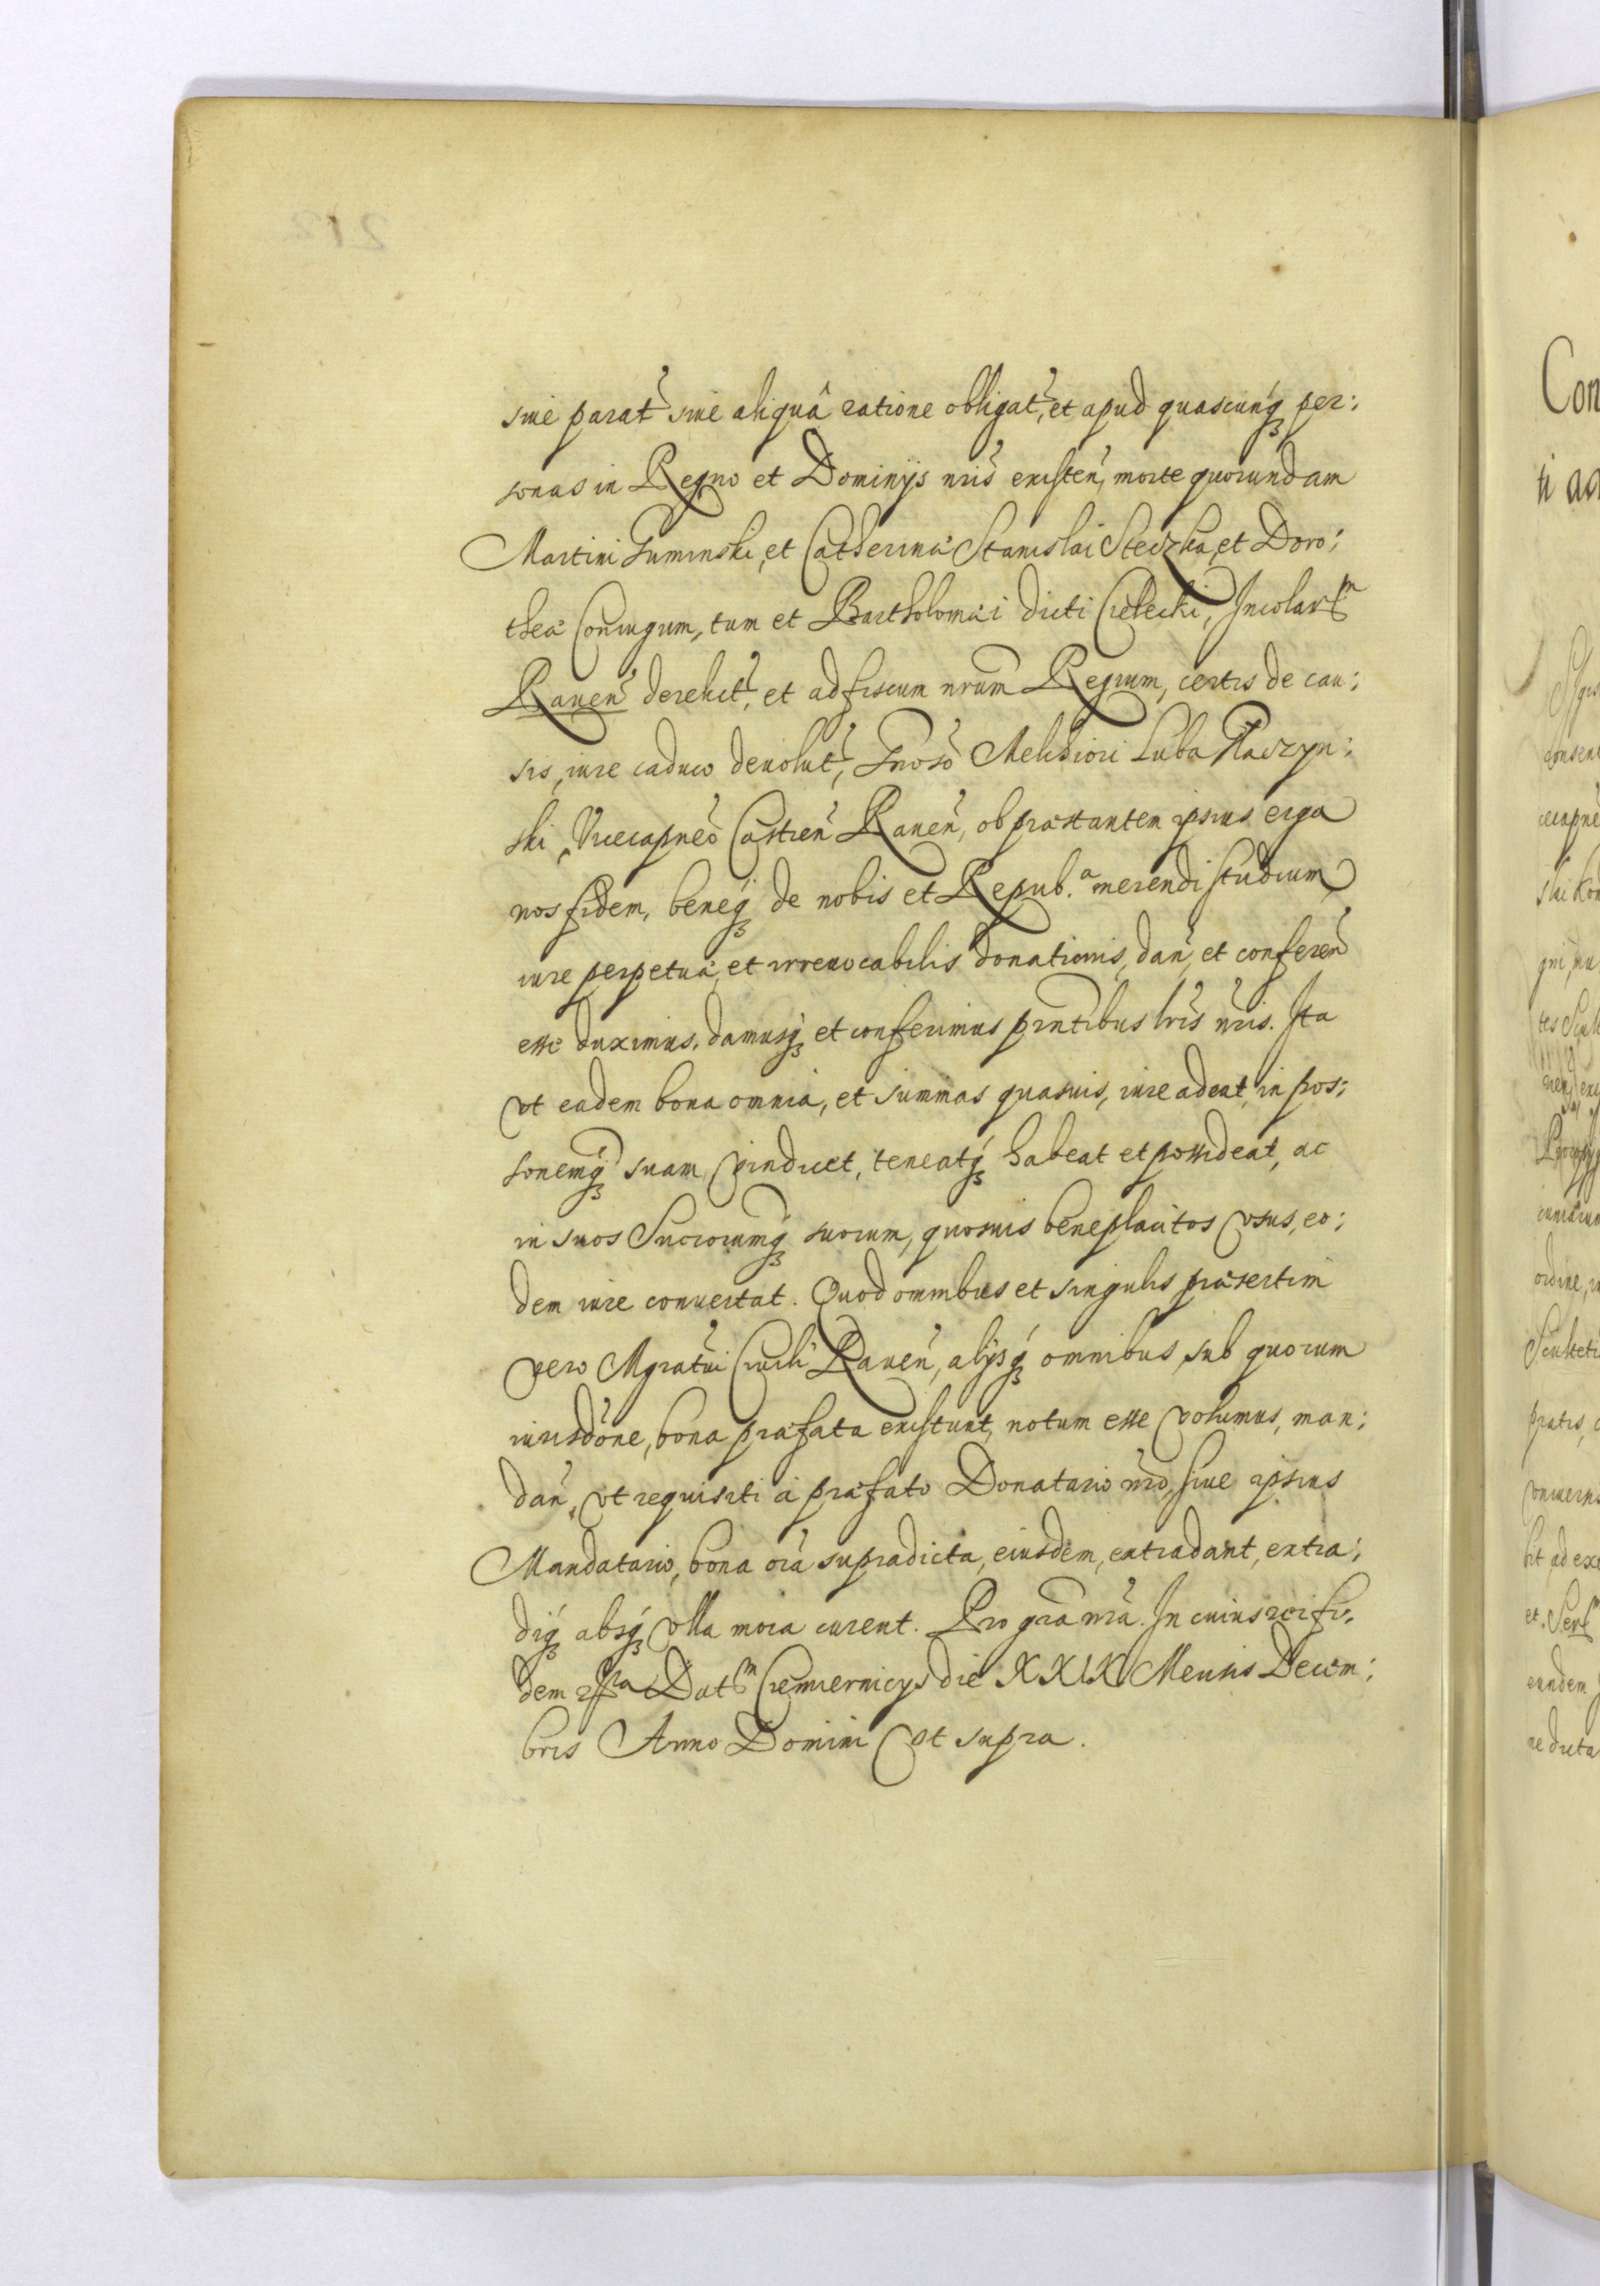 siue parat̃ siue aliquâ ratione obligat̃, et apud quascunq́ꝫ per:
sonas in Regno et Dominijs nr̃is existen̄, morte quorundam
Martini Guminski, et Catherinæ Stanislai Steczka, et Doro:
theæ Coniugum, tum et Bartholomæi dicti Cielecki, Incolarᵐ
Rauen̄ derelict̃, et ad fiscum nr̃um Regium, certis de cau:
sis, iure caduco deuolut̃, Gnoso Melchiori Luba
ski Vicecapneo Castren̄ Rauen̄, ob præstantem ipsius erga
nos fidem, beneq́ꝫ de nobis et Repub.ᵃ merendi studium,
iure perpetuæ, et irreuocabilis donationis, dan̄ et conferen̄
esse duximus. damusq́ꝫ et conferimus pñtibus lr̃is nr̃is. Ita
vt eadem bona omnia, et summas quasuis, iure adeat, in pos:
sonemq́ꝫ suam vindicet, teneatq́ꝫ habeat et possideat, ac
in suos Succorumq́ꝫ suorum, quosuis beneplacitos vsus, eo:
dem iure conuertat. Quod omnibus et singulis præsertim
vero Mgratui Ciuili Rauen̄, alijsq́ꝫ omnibus, sub quorum
iurisdõne, bona præfata existunt, notum esse volumus, man:
dan̄, vt requisiti à præfato Donatario nr̃o, siue ipsius
Mandatario, bona oĩa supradicta, eiusdem, extradant, extra:
diq́ꝫ absq́ꝫ vlla mora curent. Pro gr̃a nr̃a. In cuius rei fi:
dem Datᵐ Skierniewicijs die XXIX Mensis Decem:
bris Anno Domini vt supra.
Con
ti ad